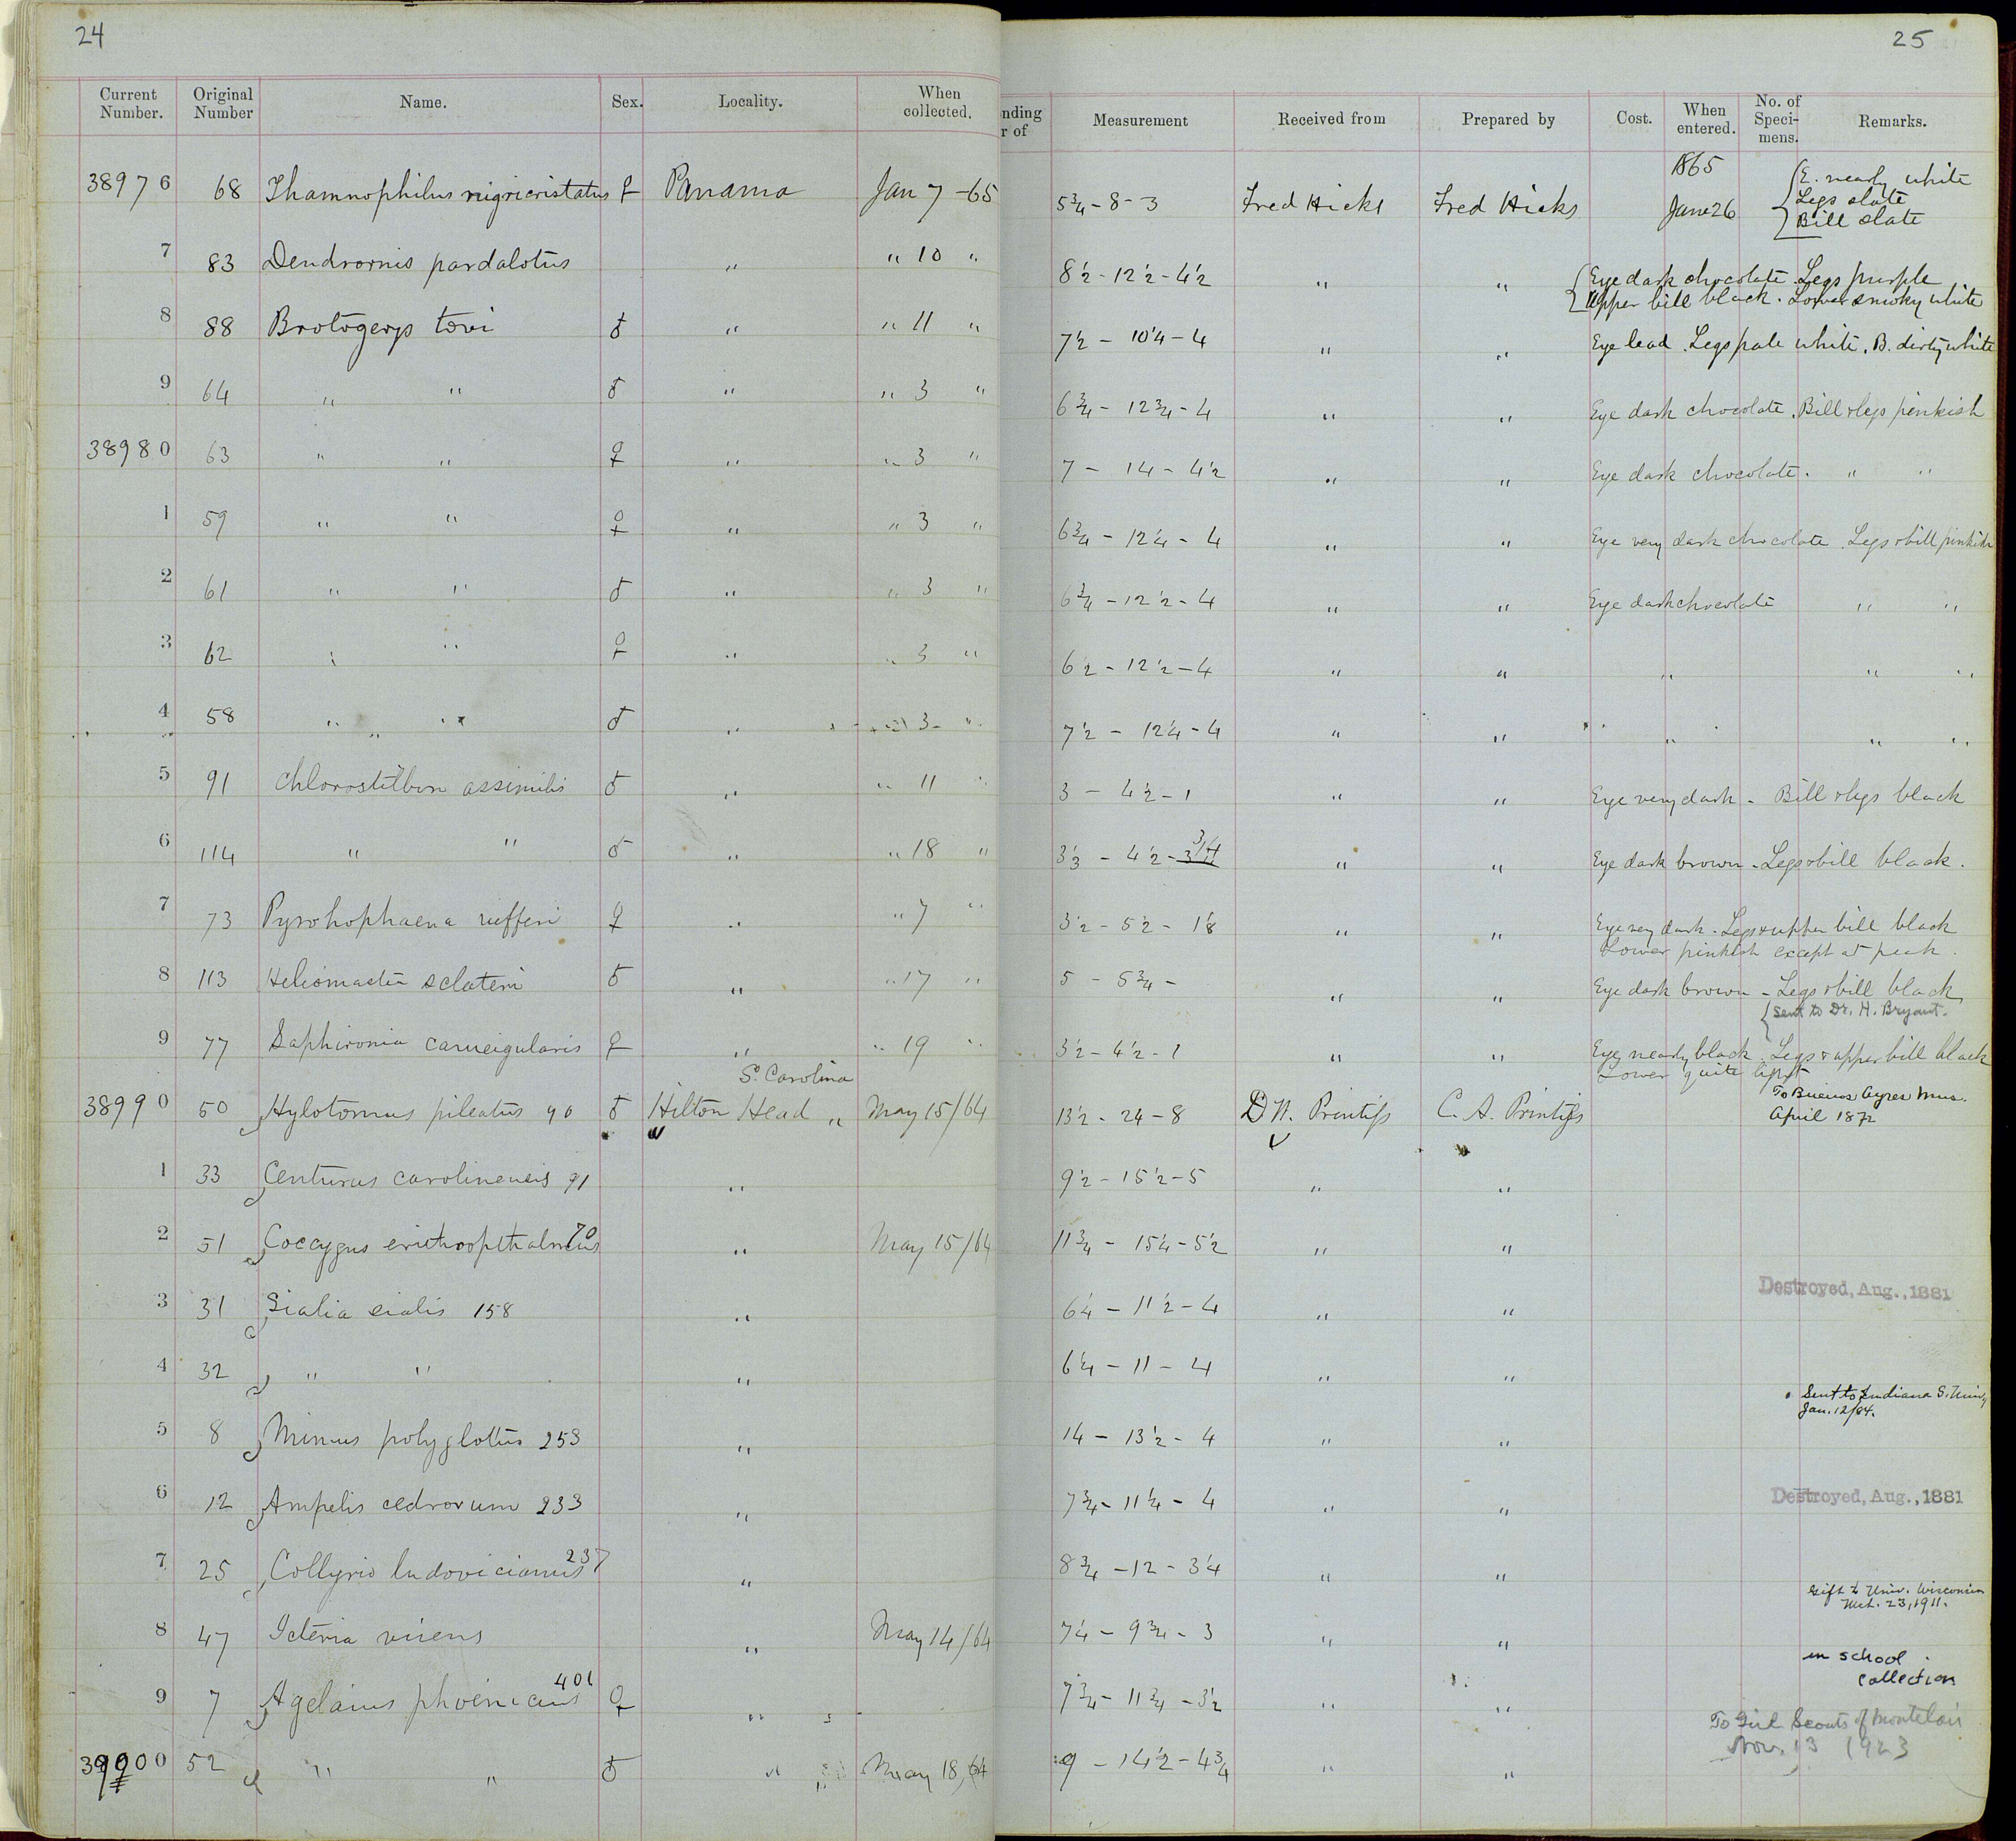 24
25
Current Number. Original Number Name. Sex. Locality. When collected. nding r of Measurement Received from Prepared by Cost. When entered. No. of Speci-mens. Remarks.
38976 68 Thamnophilus nigricristatus ♀ Panama Jan 7 -65 5¾ - 8 - 3 Fred Hicks Fred Hicks 1865 June 26 E. nearly white
Legs slate
Bill slate
7 83 Dendrornis pardalotus " " 10 " 8½ - 12½ - 4½ " " Eye dark chocolate. Legs purple
Upper bill black. Lower smoky white
8 88 Brotogerys tovi ♂ " " 11 " 7½ - 10¼ - 4 " " Eye lead. Legs pale white. B. dirty white
9 64 " " ♂ " " 3 " 6¾ - 12¾ - 4 " " Eye dark chocolate. Bill & legs pinkish
38980 63 " " ♀ " " 3 " 7 - 14 - 4½ " " Eye dark chocolate. " "
1 59 " " ♀ " " 3 " 6¾ - 12¼ - 4 " " Eye very dark chocolate. Legs & bill pinkish
2 61 " " ♂ " " 3 " 6¾ - 12½ - 4 " " Eye dark chocolate " "
3 62 " " ♀ " " 3 " 6½ - 12½ - 4 " " " " "
4 58 " " ♂ " " 3 " 7½ - 12¼ - 4 " " " " "
5 91 Chlorostilbon assimilis ♂ " " 11 " 3 - 4½ - 1 " " Eye very dark - Bill & legs black
6 114 " " ♂ " " 18 " 3⅓ - 4½ - 3/4 " " Eye dark brown - Legs & bill black.
7 73 Pyrohophaena riefferi ♀ " " 7 " 3½ - 5½ - 1⅛ " " Eye very dark. Legs & upper bill black
Lower pinkish except at peak.
8 113 Heliomaster sclateri ♂ " " 17 " 5 - 5¾ - " " Eye dark brown - Legs & bill black
sent to Dr. H. Bryant.
9 77 Saphironia carueigularis ♀ " " 19 " 3½ - 4½ - 1 " " Eye nearly black. Legs & upper bill black
Lower quite light
S. Carolina
38990 50 Hylotomus pileatus 90 ♂ Hilton Head " May 15/64 13½ - 24 - 8 D W. Prentiss C. A. Prentiss To Buenos Ayres Mus.
April 1872
1 33 Centurus carolinensis 91 " 9½ - 15½ - 5 " "
2 51 Coccygus erithropthalmus 70 " May 15/64 11¾ - 15¼ - 5½ " "
3 31 Sialia sialis 158 " 6¼ - 11½ - 4 " " Destroyed, Aug., 1881
4 32 " " " 6¼ - 11 - 4 " "
5 8 Mimus polyglottus 253 " 14 - 13½ - 4 " " Sent to Indiana S. Univ
Jan. 12/84.
6 12 Ampelis cedrorum 233 " 7¾ - 11¼ - 4 " " Destroyed, Aug., 1881
7 25 Collyrio ludovicianus 237 " 8¾ - 12 - 3¼ " "
8 47 Icteria virens " May 14/64 7¼ - 9¾ - 3 " " Gift to Univ. Wisconsin
Mch. 23, 1911.
9 7 Agelaius phoenicaus 401 ♀ " 7¾ - 11¾ - 3½ " " in school
collection
39900 52 " " ♂ " " May 18, 64 9 - 14½ - 4¾ " " To Girl Scouts of Montclair
Nov. 13 1923